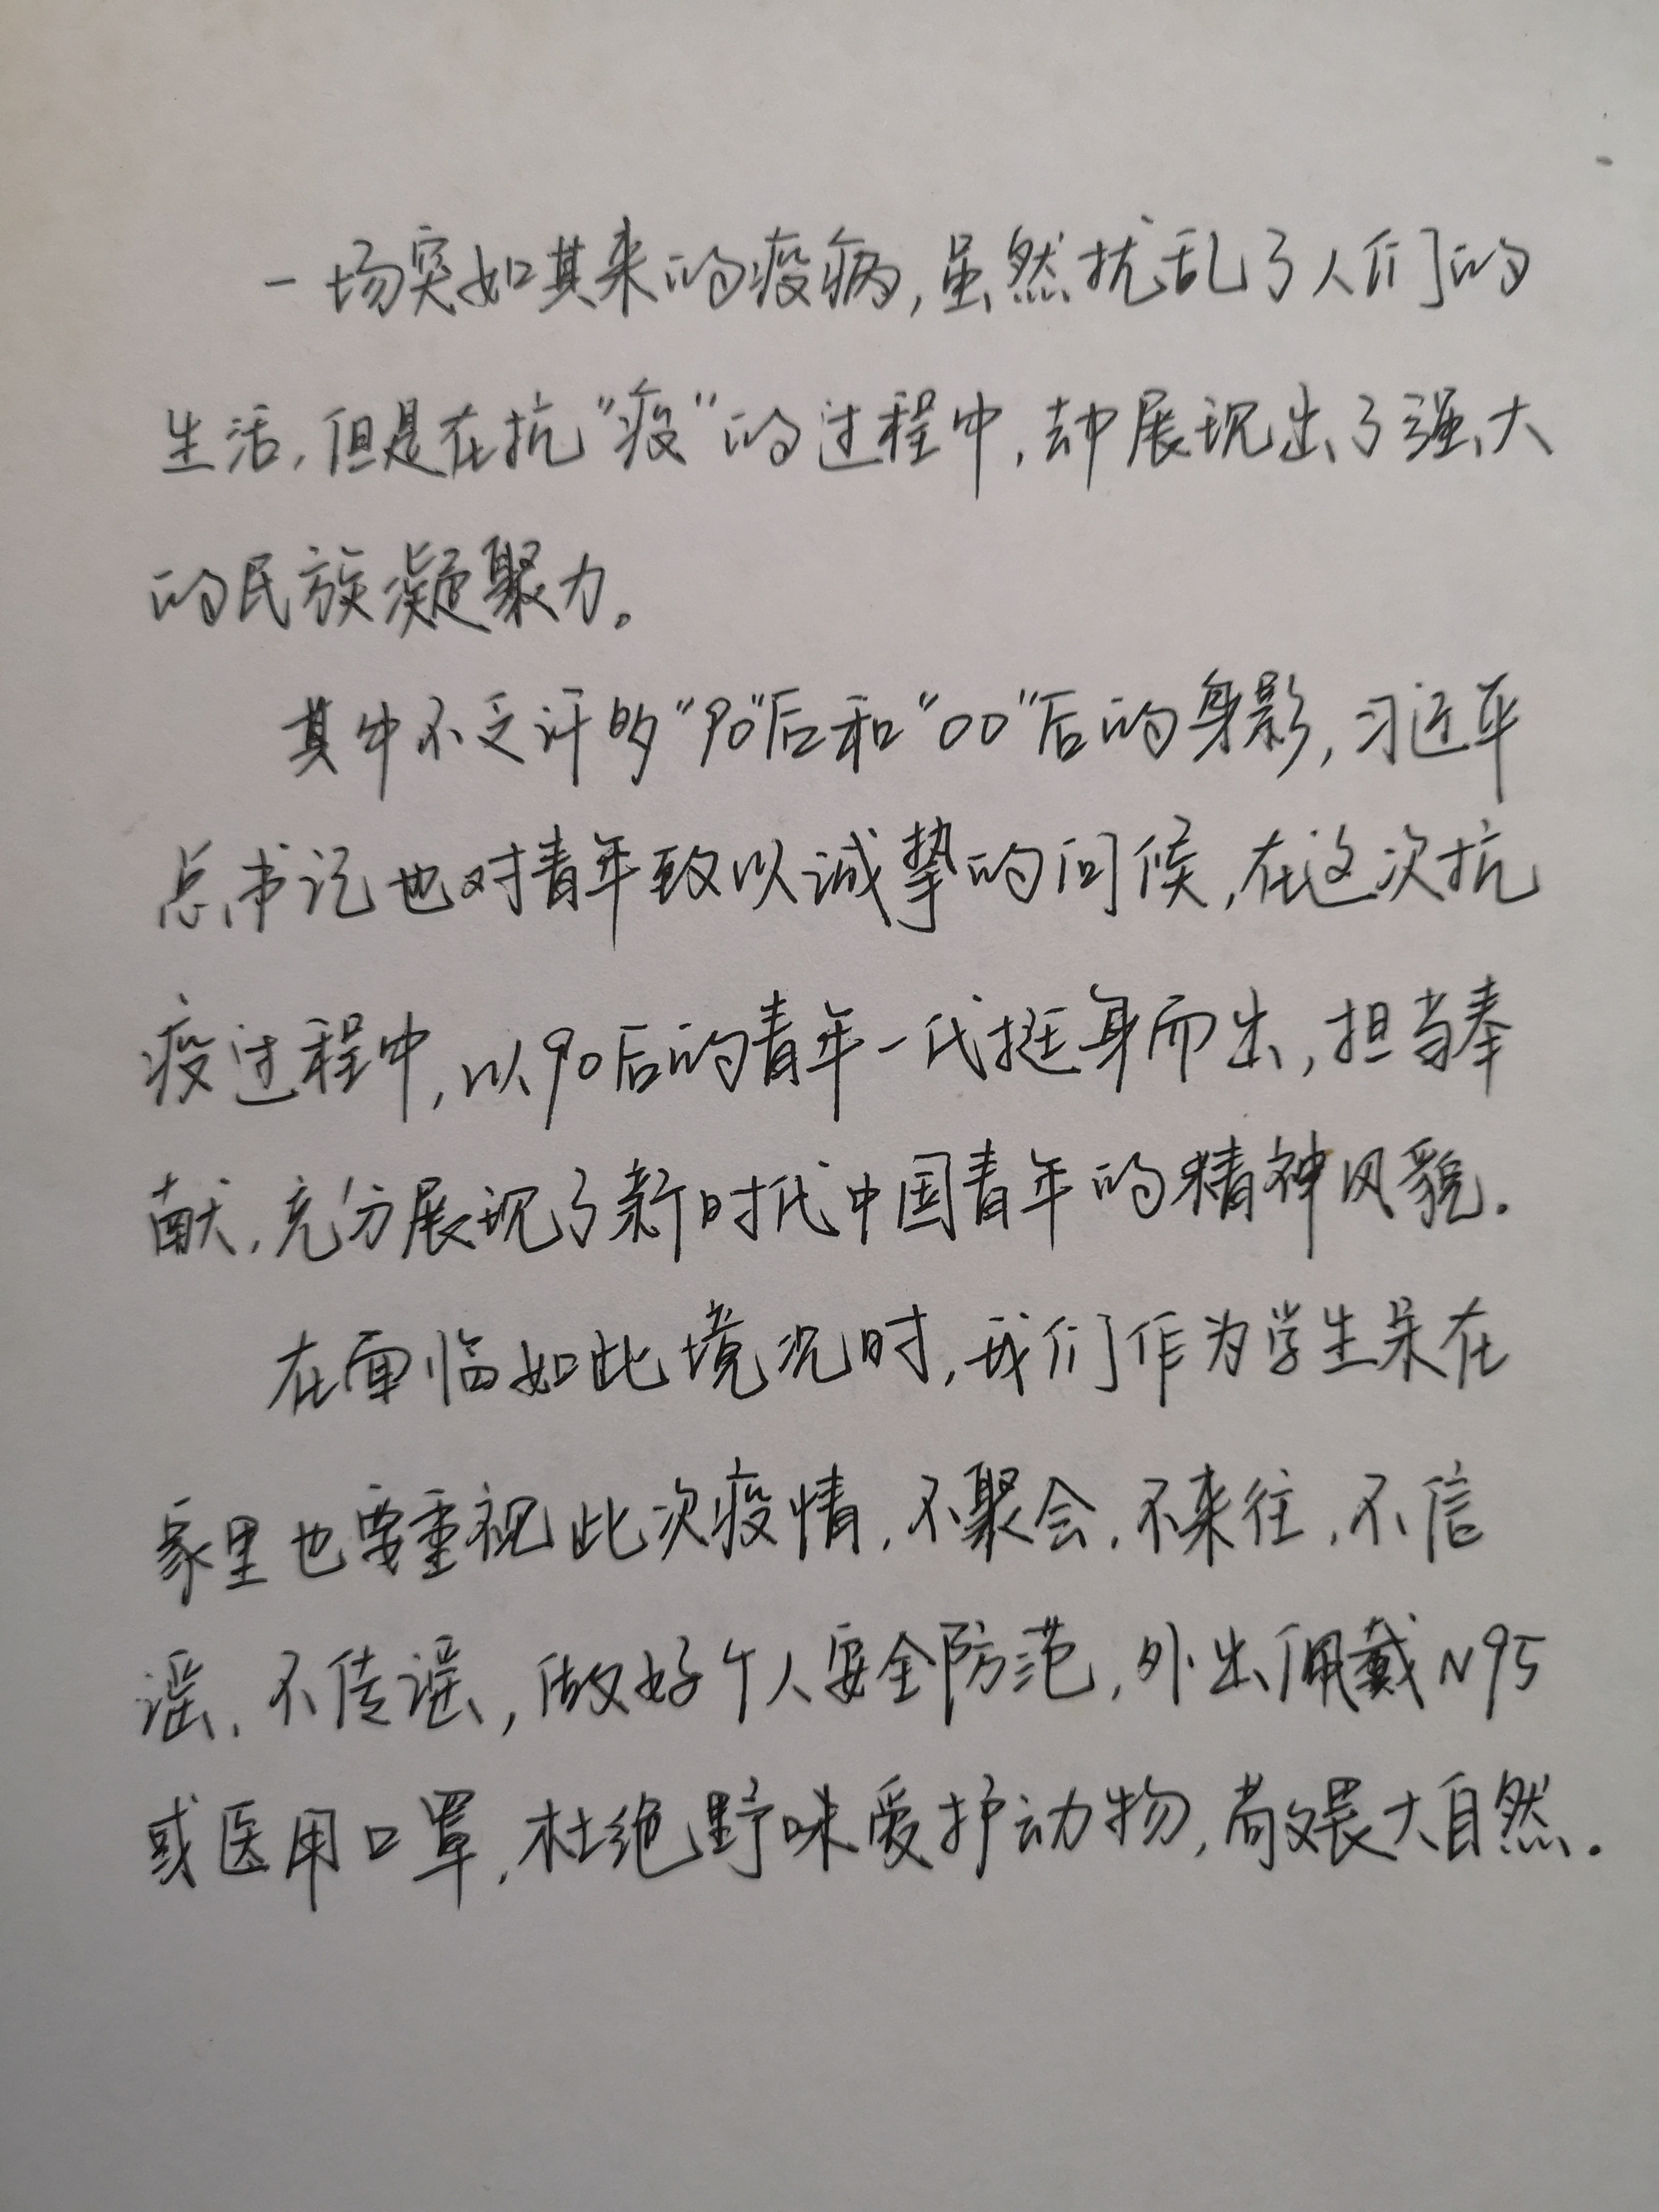 一场突如其来的疫病，虽然扰乱了人们的
生活，但是在抗“疫”的过程中，却展现出了强大
的民族凝聚力。
其中不乏许多“90”后和“00”后的身影，习近平
总书记也对青年致以诚挚的问候，在这次抗
疫过程中，以90后的青年一代挺身而出，担当奉
献，充分展现了新时代中国青年的精神风貌.
在面临如此境况时，我们作为学生呆在
家里也要重视此次疫情，不聚会，不来往，不信
谣，不传谣，做好个人安全防范，外出佩戴N95
或医用口罩，杜绝野味爱护动物，敬畏大自然.